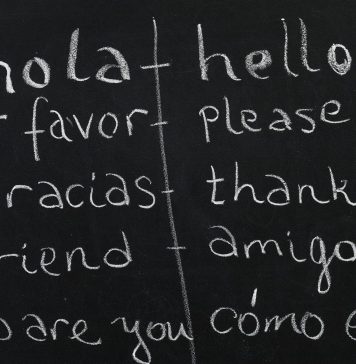 hola - hello
favor - please
gracias - thank
friend - amigo
are you cómo